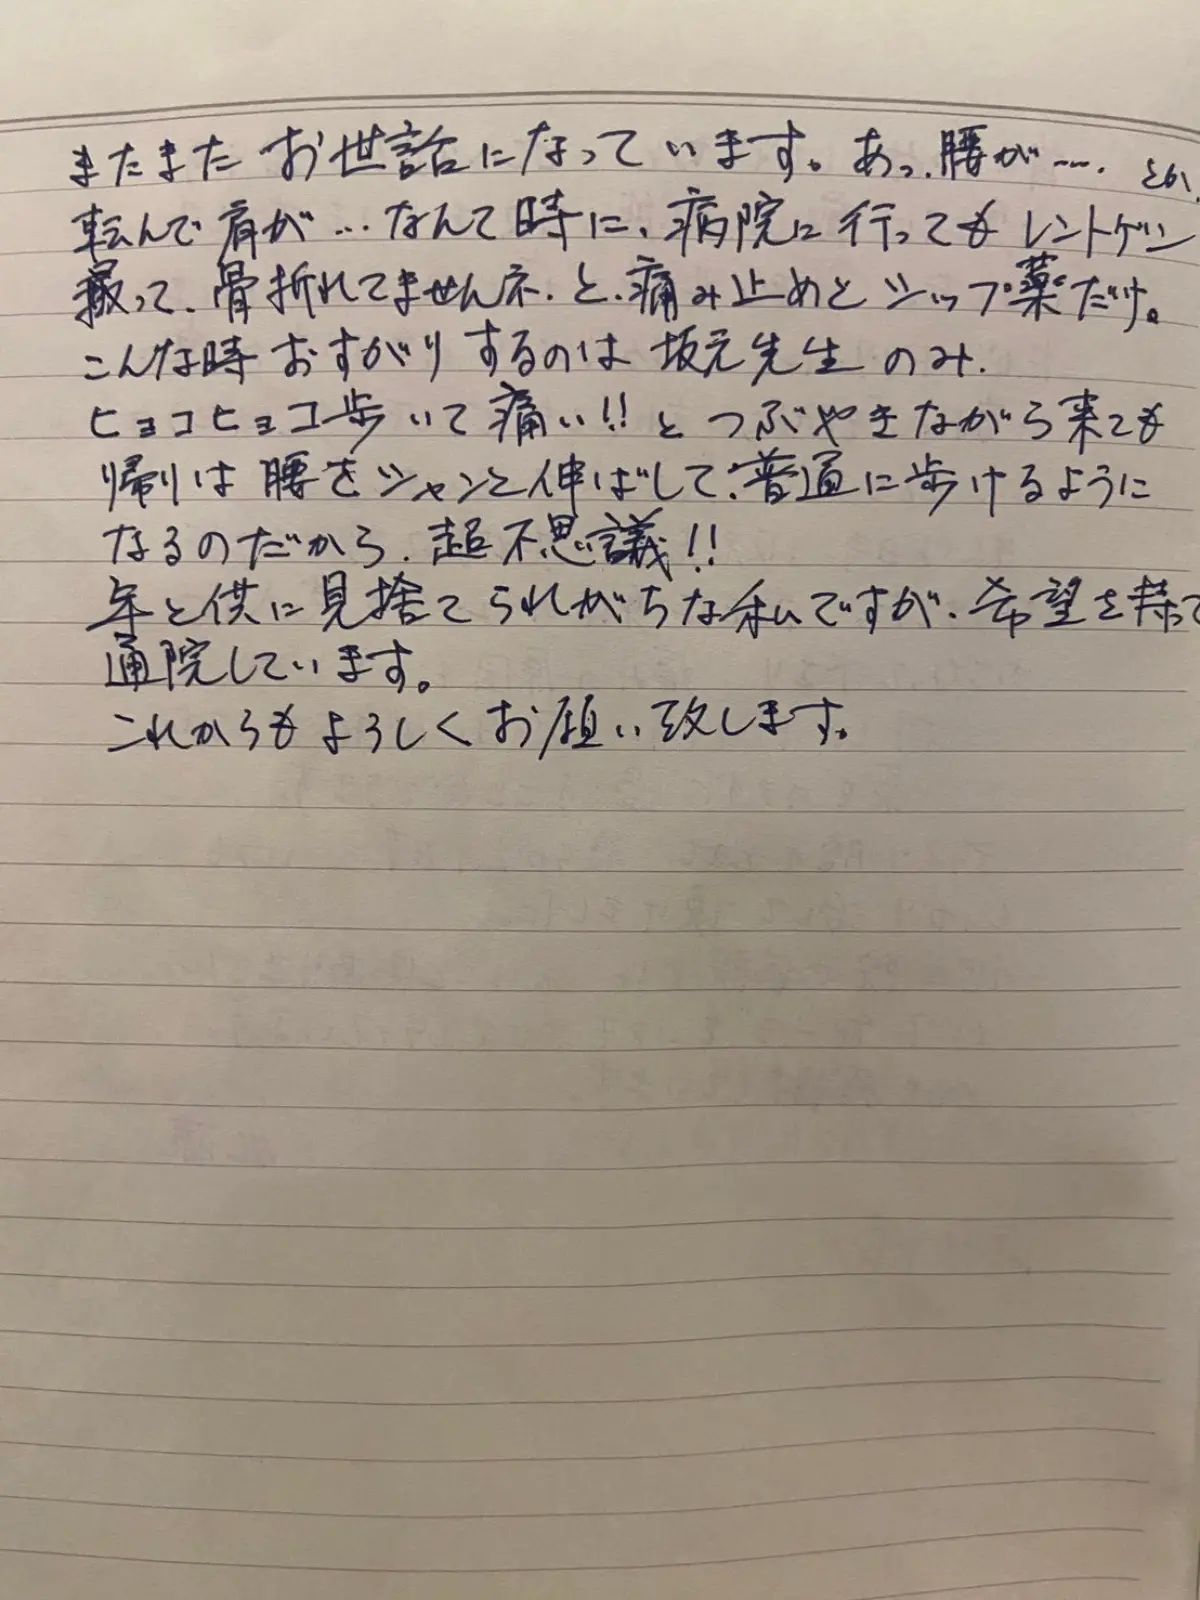 またまたお世話になっています。あっ、腰が…. とか、
転んで肩が…なんて時に、病院に行ってもレントゲン
撮って、骨折れてませんネ、と、痛み止めとシップ薬だけ。
こんな時おすがりするのは坂元先生のみ.
ヒョコヒョコ歩いて痛い!!とつぶやきながら来ても
帰りは腰をシャンと伸ばして、普通に歩けるように
なるのだから、超不思議!!
年と供に見捨てられがちな私ですが、希望を持って
通院しています。
これからもよろしくお願い致します。